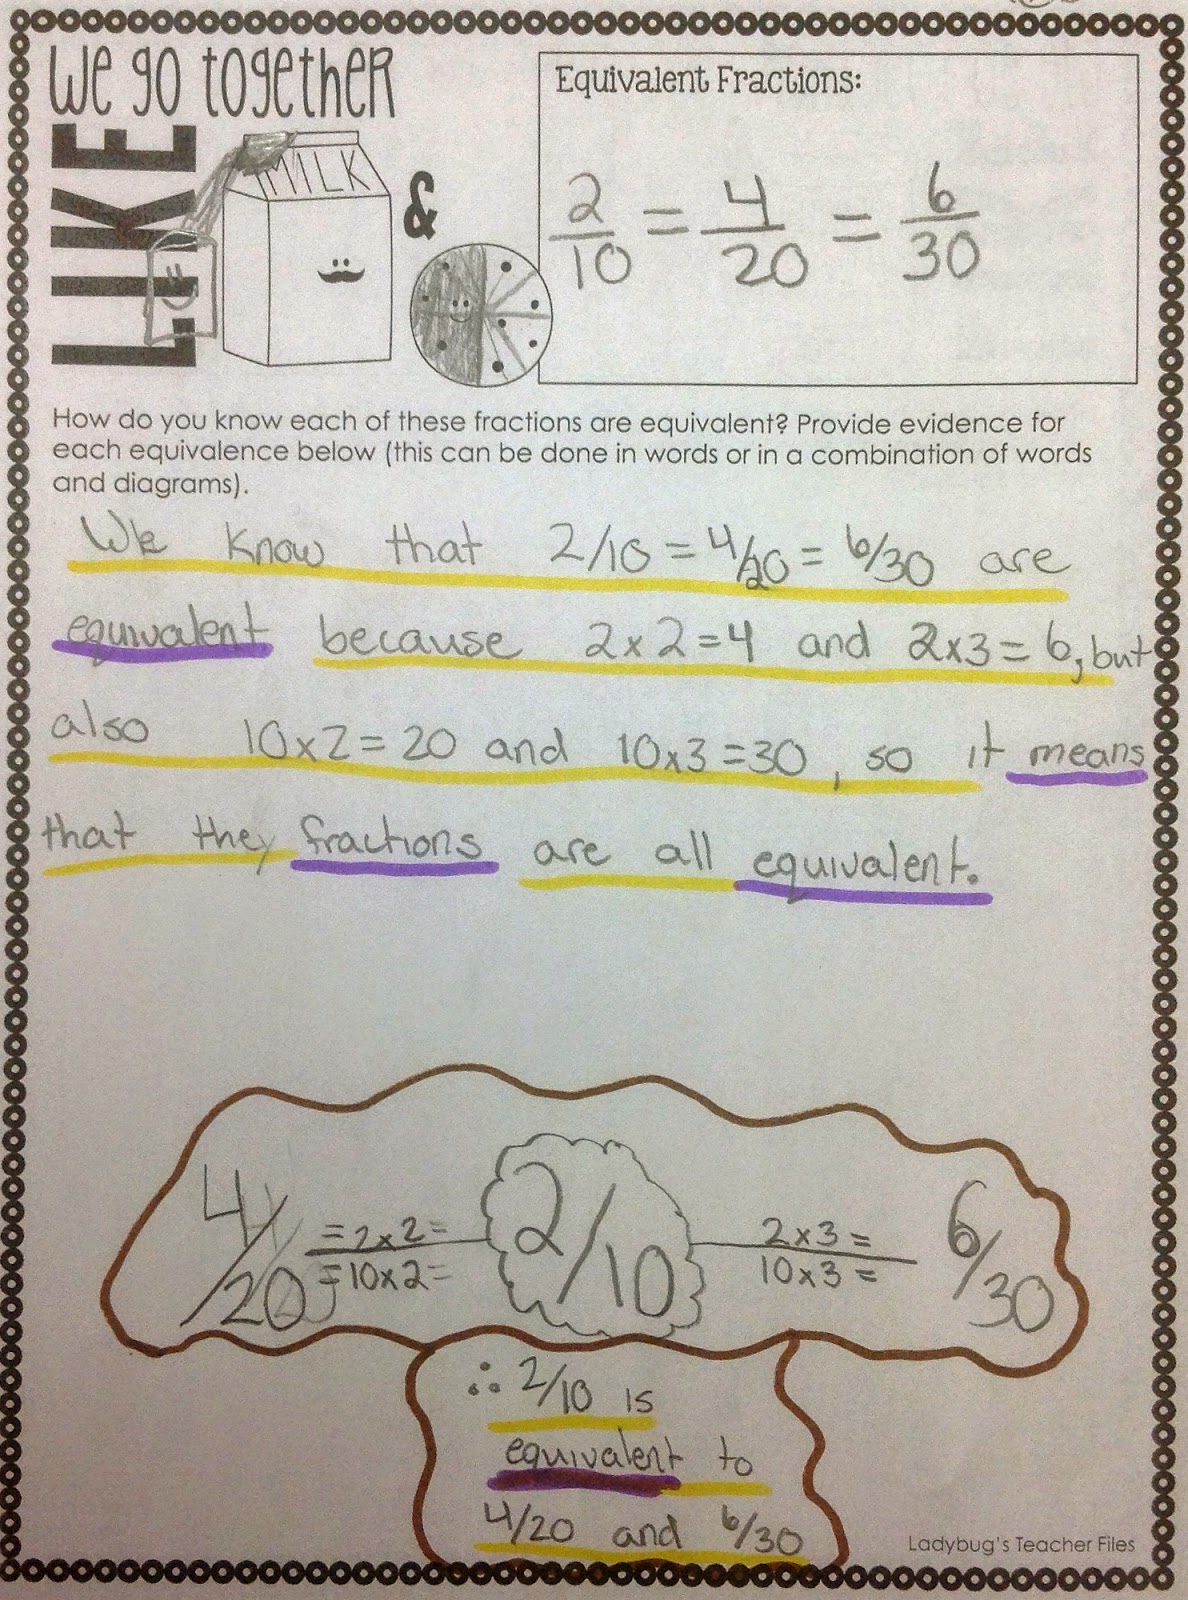 We go together
LIKE
MILK
&
Equivalent Fractions:
2/10 = 4/20 = 6/30
How do you know each of these fractions are equivalent? Provide evidence for
each equivalence below (this can be done in words or in a combination of words
and diagrams).
We know that 2/10 = 4/20 = 6/30 are
equivalent because 2x2=4 and 2x3=6, but
also 10x2=20 and 10x3=30, so it means
that they fractions are all equivalent.
4/20 =2x2= / =10x2= 2/10 2x3= / 10x3= 6/30
∴ 2/10 is
equivalent to
4/20 and 6/30
Ladybug's Teacher Files